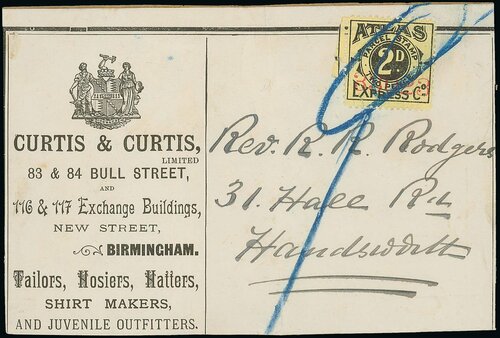 CURTIS & CURTIS,
LIMITED
83 & 84 BULL STREET,
AND
116 & 117 Exchange Buildings,
NEW STREET,
BIRMINGHAM.
Tailors, Hosiers, Hatters,
SHIRT MAKERS,
AND JUVENILE OUTFITTERS.
ATLAS
PARCEL STAMP
2D
EXPRESS Co
Rev. R. R. Rodgers
31. Hall Rd
Handsworth